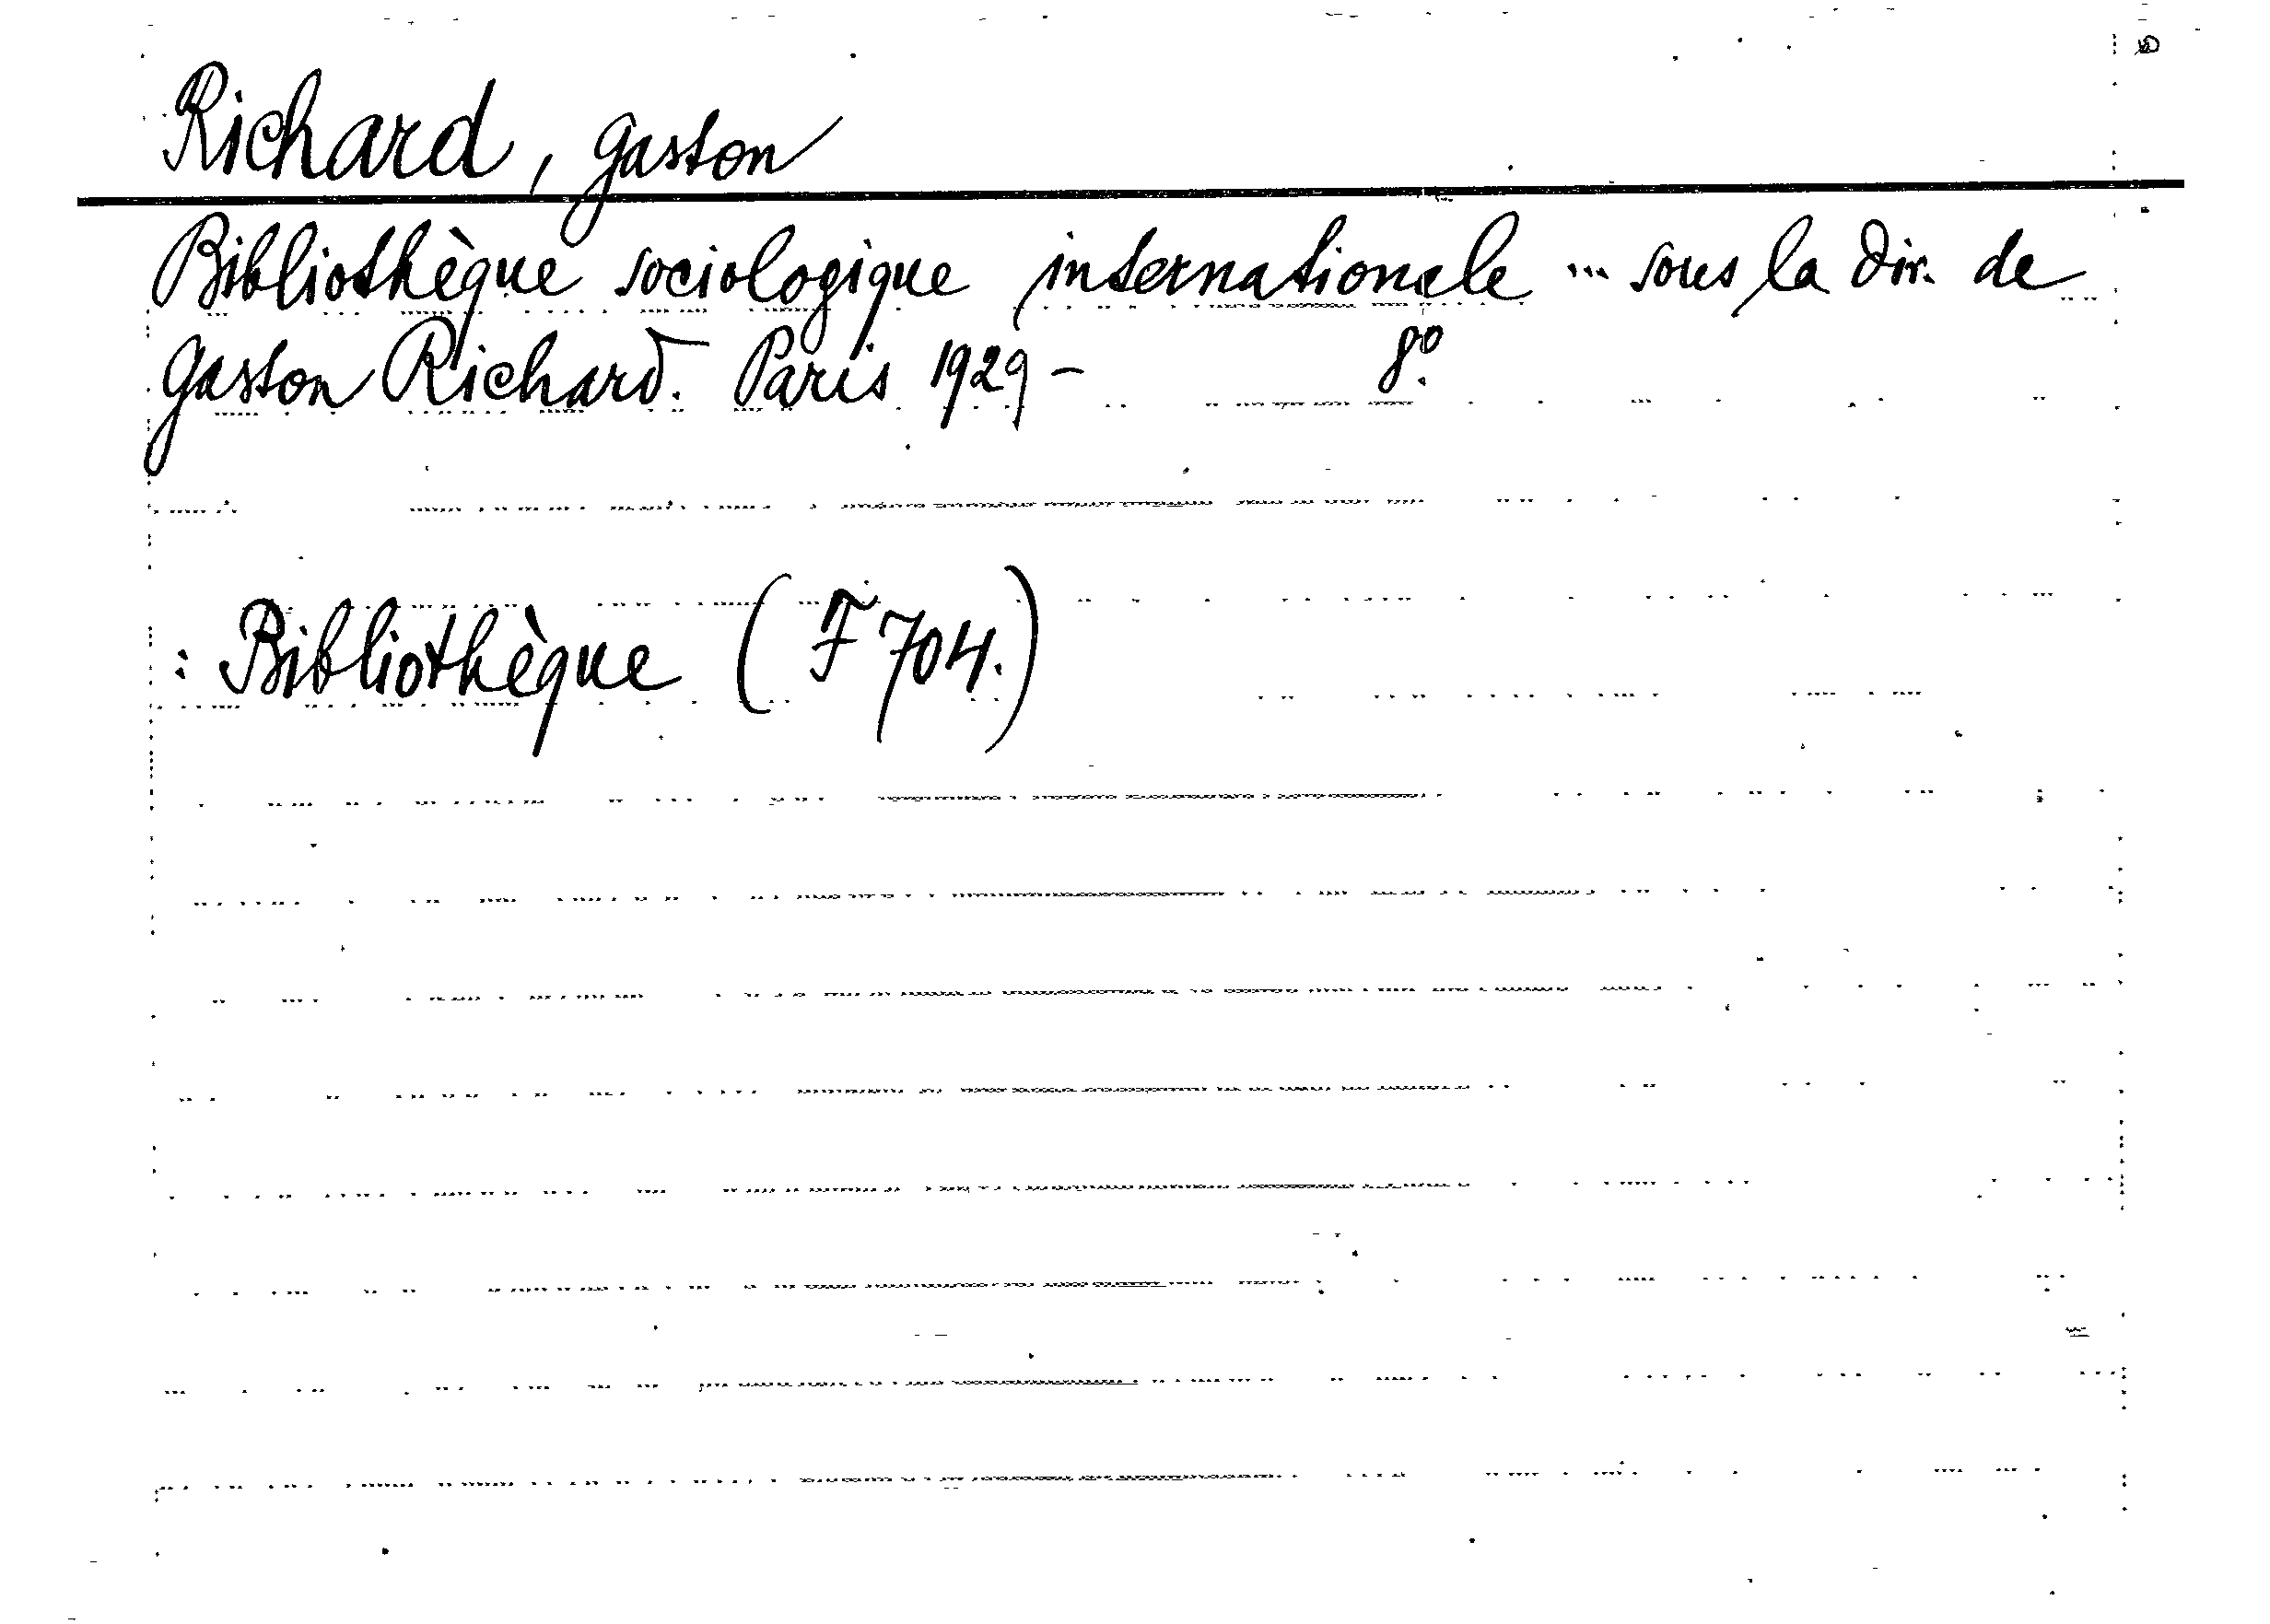 Richard, Gaston
Bibliothèque sociologique internationale ... sous la dir. de
Gaston Richard. Paris 1929 - 8º.
: Bibliothèque (F 704.)